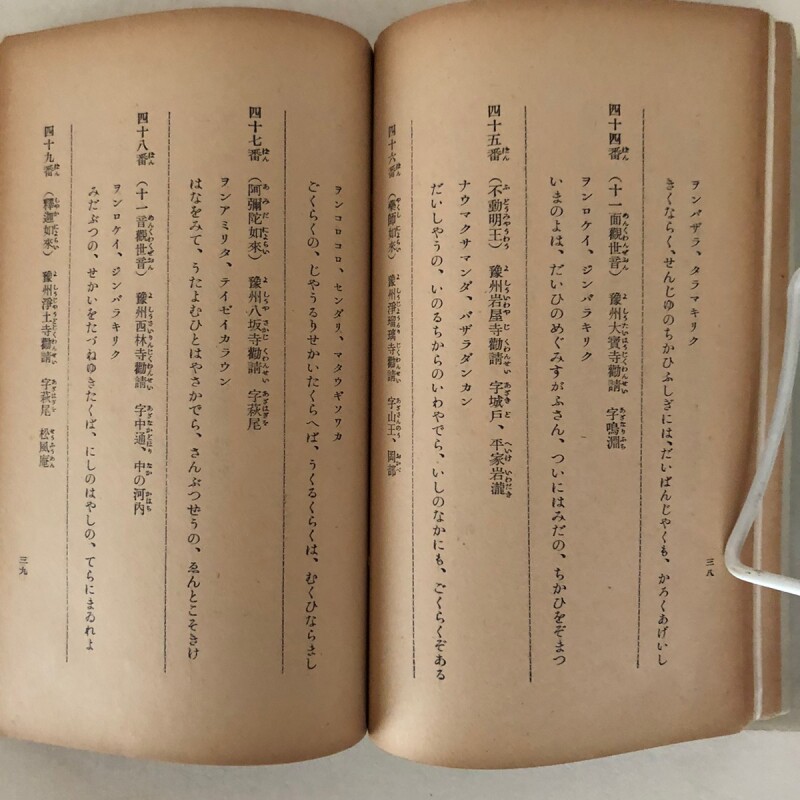 ヲンバザラ、タラマキリク
きくならく、せんじゆのちかひふしぎには、だいばんじやくも、かろくあげいし
四十四番 (十一面觀世音) 豫州大寶寺勸請 字鳴淵
ヲンロケイ、ジンバラキリク
いまのよは、だいひのめぐみすがふさん、ついにはみだの、ちかひをぞまつ
四十五番 (不動明王) 豫州岩屋寺勸請 字城戸、平家岩瀧
ナウマクサマンダ、バザラダンカン
だいしやうの、いのるちからのいわやでら、いしのなかにも、ごくらくぞある
四十六番 (藥師如來) 豫州淨瑠璃寺勸請 字山王、岡部
三八
ヲンコロコロ、センダリ、マタウギソワカ
ごくらくの、じやうるりせかいたくらへば、うくるくらくは、むくひならまし
四十七番 (阿彌陀如來) 豫州八坂寺勸請 字萩尾
ヲンアミリタ、テイゼイカラウン
はなをみて、うたよむひとはやさかでら、さんぶつせうの、ゑんとこそきけ
四十八番 (十一音觀世音) 豫州西林寺勸請 字中通、中の河内
ヲンロケイ、ジンバラキリク
みだぶつの、せかいをたづねゆきたくば、にしのはやしの、てらにまゐれよ
四十九番 (釋迦如來) 豫州淨土寺勸請 字萩尾 松風庵
三九